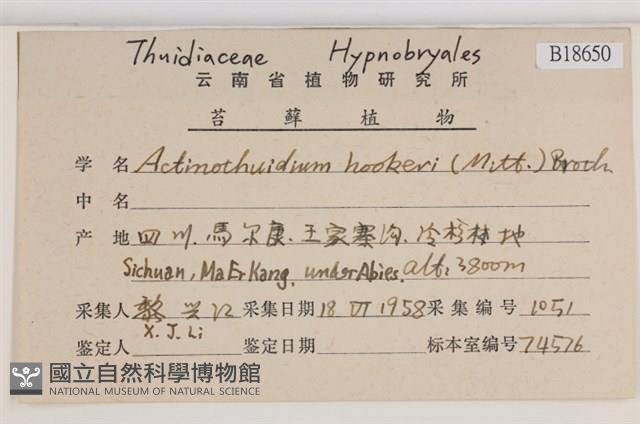 Thuidiaceae Hypnobryales
B18650
云南省植物研究所
苔藓植物
学名 Actinothuidium hookeri (Mitt.) Broth.
中名
产地 四川、馬尔康、王家寨沟、冷杉林地
Sichuan, MaErKang, under Abies, alt: 3800m
采集人 黎兴江 采集日期 18 VI 1958 采集编号 1051
X. J. Li
鉴定人 鉴定日期 标本室编号 74576
國立自然科學博物館
NATIONAL MUSEUM OF NATURAL SCIENCE